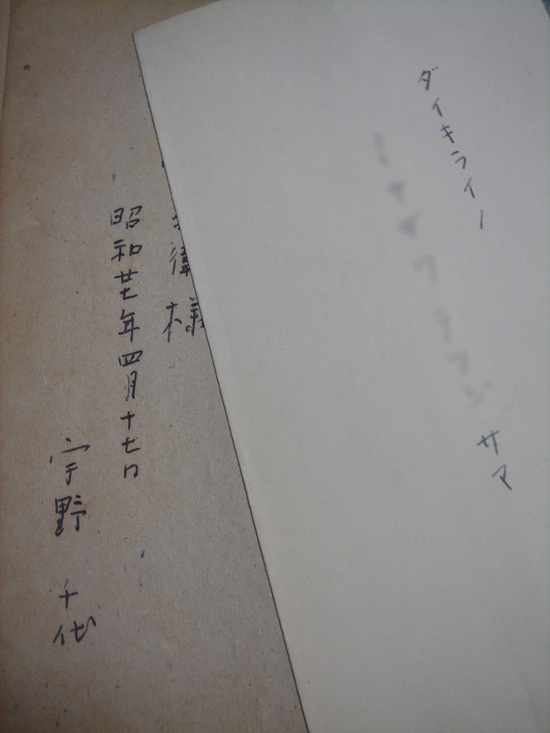 ダイキライノ
サマ
衛様
昭和廿七年四月十七日
宇野 千代